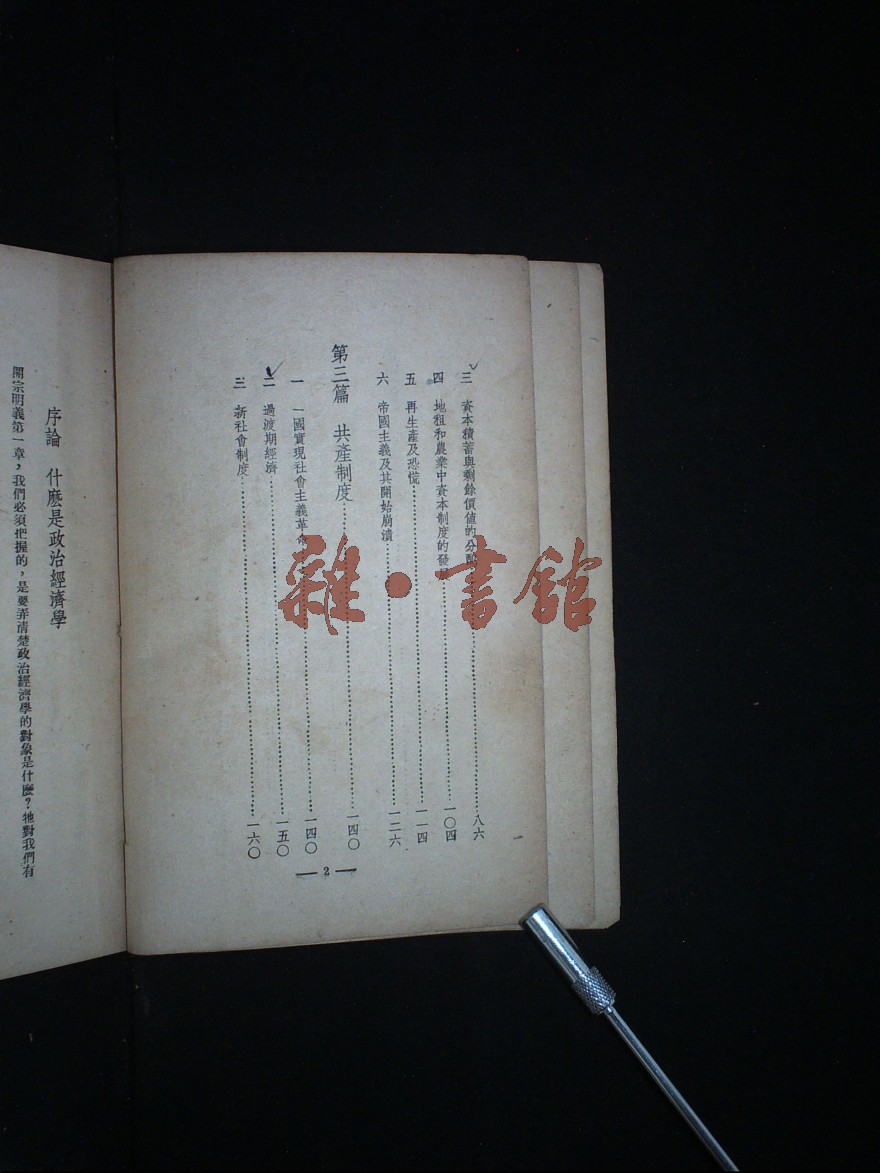 三 資本積蓄與剩餘價值的分配……八六
四 地租和農業中資本制度的發展……一〇四
五 再生產及恐慌……一一四
六 帝國主義及其開始崩潰……一二六
第三篇 共產制度……一四〇
一 一國實現社會主義革命……一四〇
二 過渡期經濟……一五〇
三 新社會制度……一六〇
— 2 —
序論 什麽是政治經濟學
開宗明義第一章,我們必須把握的,是要弄清楚政治經濟學的對象是什麽?牠對我們有
雜·書館